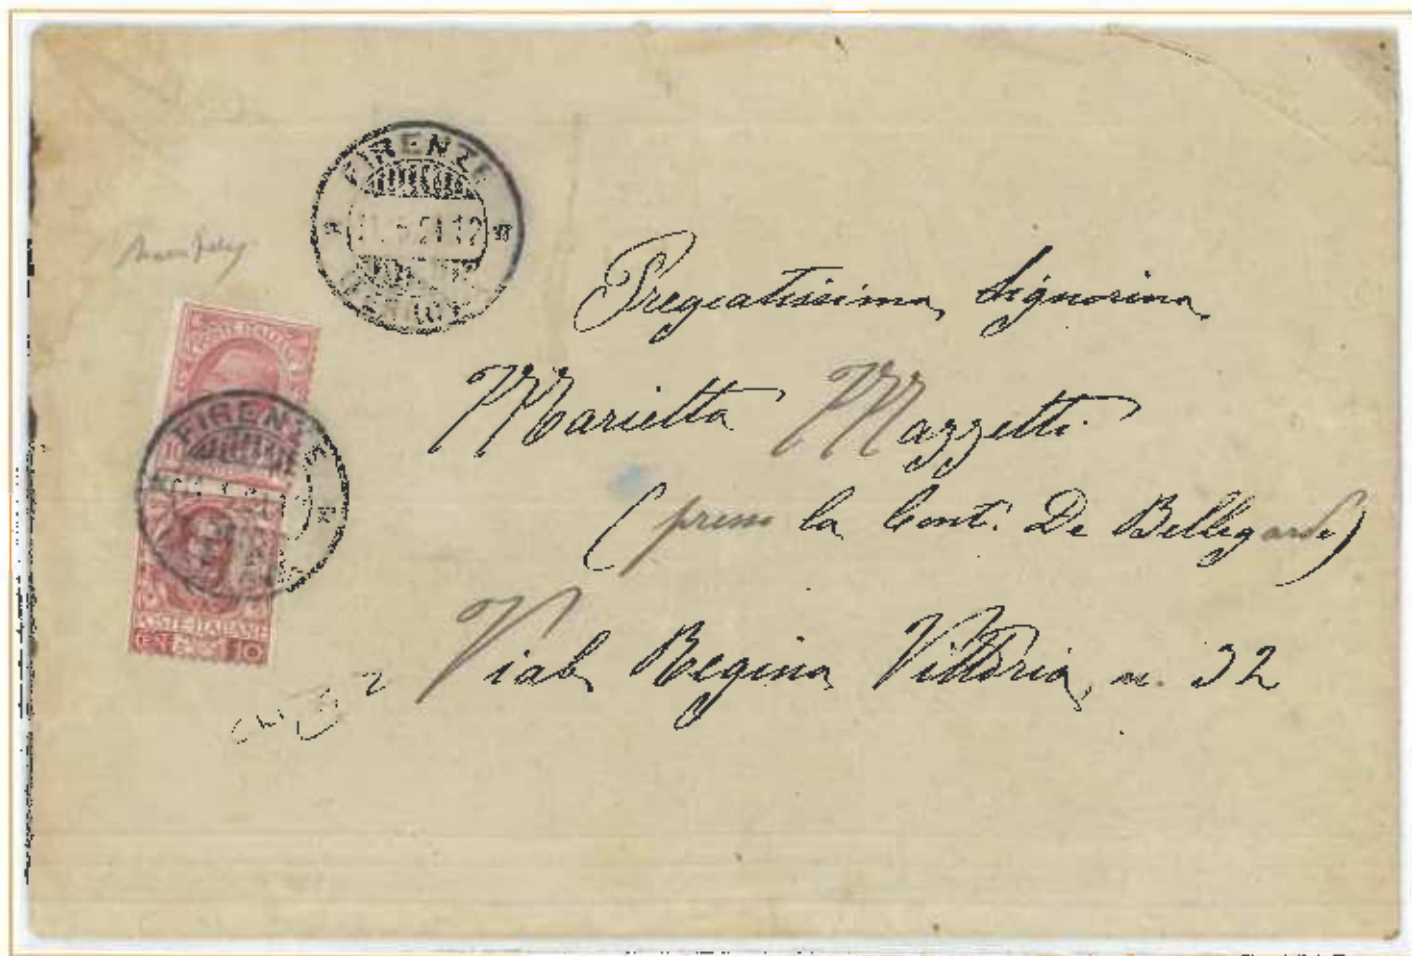 FIRENZE
21.12
POSTE ITALIANE
10
FIRENZE
POSTE·ITALIANE
CEN 10
Pregiatissima Signorina
Marietta Mazzetti
(presso la Cont. De Bellegarde)
Viale Regina Vittoria, n. 32